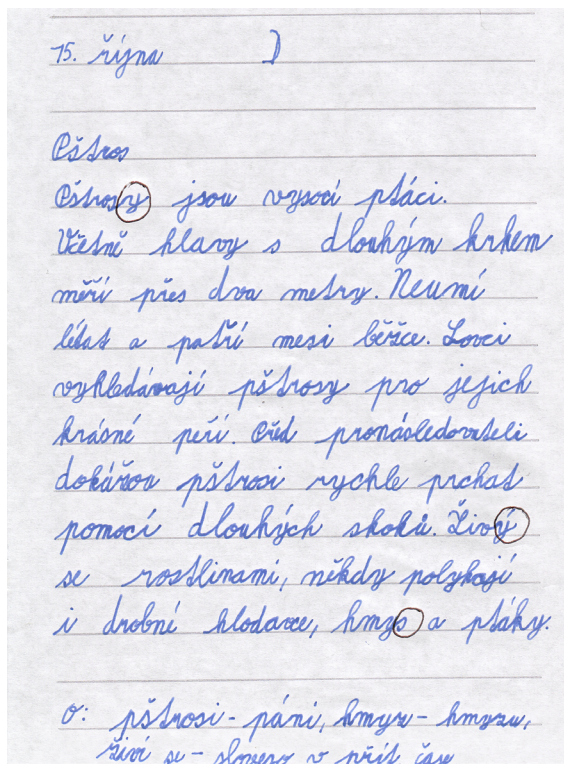 15. října D
Pštros
Pštrosy jsou vysocí ptáci.
Včetně hlavy s dlouhým krkem
měří přes dva metry. Neumí
létat a patří mesi běžce. Lovci
vyhledávají pštrosy pro jejich
krásné peří. Před pronásledovateli
dokážou pštrosi rychle prchat
pomocí dlouhých skoků. Živý
se rostlinami, někdy polykají
i drobné hlodavce, hmys a ptáky.
o: pštrosi - páni, hmyz - hmyzu,
živí se - sloveso v přít. čase